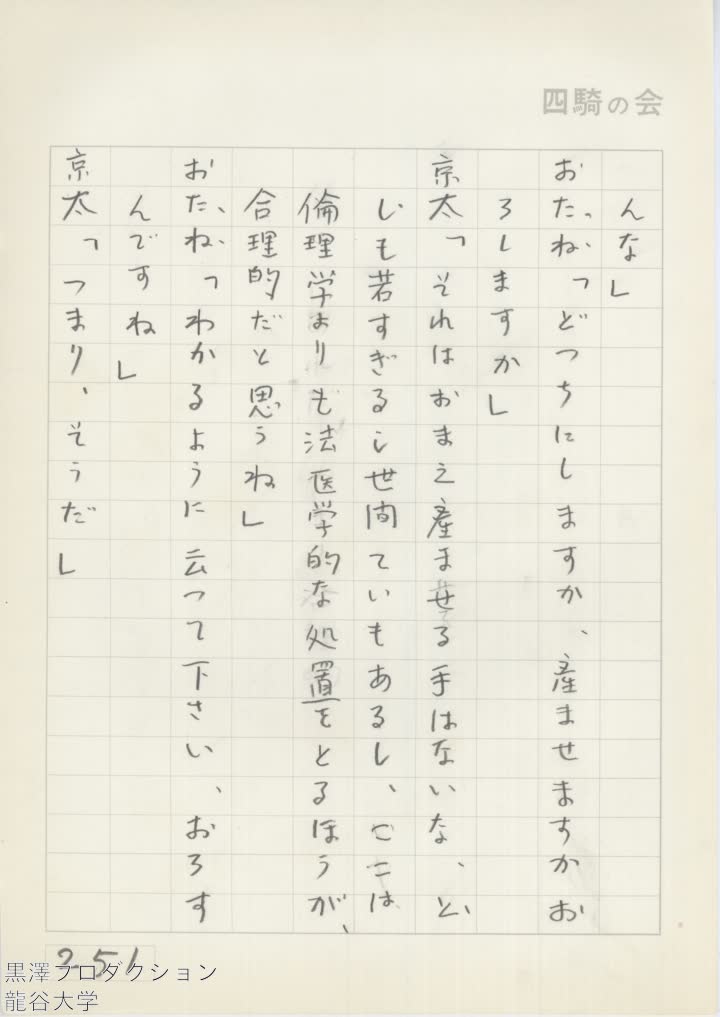 四騎の会
んな」
おたね「どっちにしますか、産ませますかお
ろしますか」
京太「それはおまえ産ませる手はないな、ど
しも若すぎるし世間ていもあるし、ここは
倫理学よりも法医学的な処置をとるほうが、
合理的だと思うね」
おたね「わかるように云って下さい、おろす
んですね」
京太「つまり、そうだ」
251
黒澤プロダクション
龍谷大学